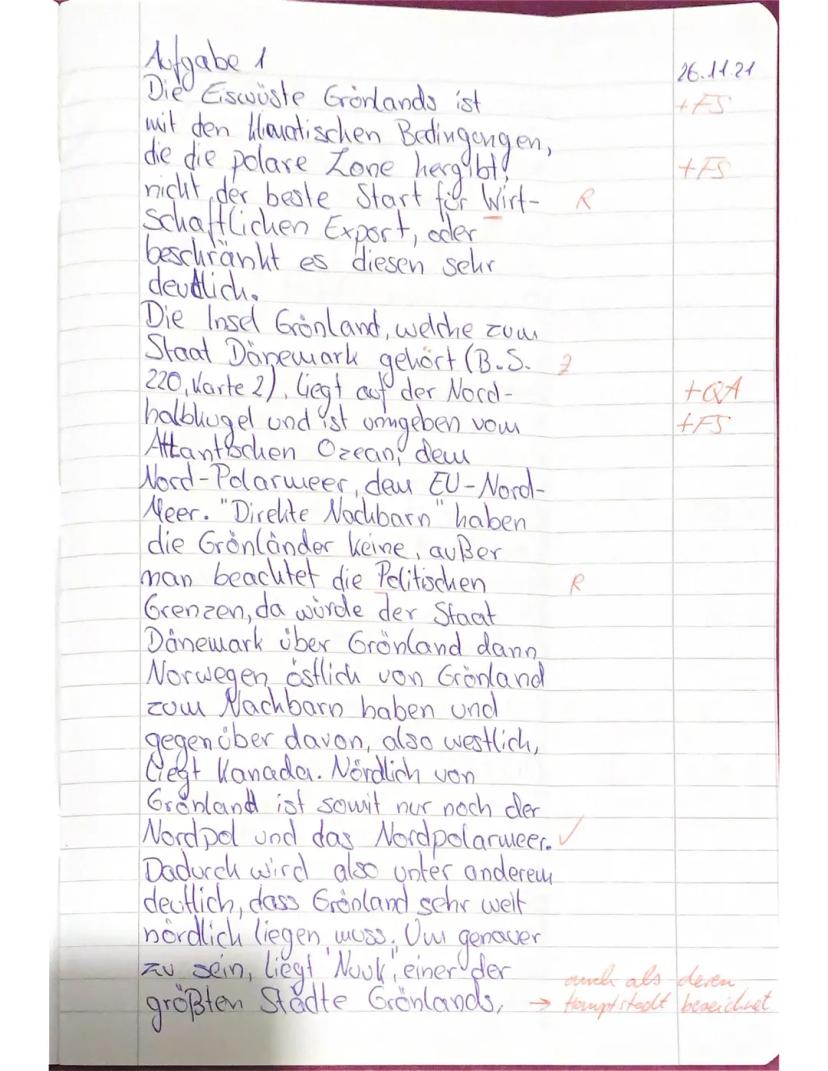 Aufgabe 1
26.11.21
Die Eiswüste Grönlands ist
+FS
mit den klimatischen Bedingungen,
die die polare Zone hergibt,
+FS
nicht der beste Start für Wirt-
R
schaftlichen Export, oder
beschränkt es diesen sehr
deutlich.
Die Insel Grönland, welche zum
Staat Dänemark gehört (B.S.
Z
220, Karte 2), liegt auf der Nord-
+QA
halbkugel und ist umgeben vom
+FS
Attantischen Ozean, dem
Nord-Polarmeer, dem EU-Nord-
Meer. "Direkte Nachbarn" haben
die Grönländer keine, außer
man beachtet die Politischen
R
Grenzen, da würde der Staat
Dänemark über Grönland dann
Norwegen östlich von Grönland
zum Nachbarn haben und
gegenüber davon, also westlich,
liegt Kanada. Nördlich von
Grönland ist somit nur noch der
Nordpol und das Nordpolarmeer. ✓
Dadurch wird also unter anderem
deutlich, dass Grönland sehr weit
nördlich liegen muss. Um genauer
zu sein, liegt 'Nuuk', einer der
größten Städte Grönlands,
auch als deren
→ Hauptstadt bezeichnet